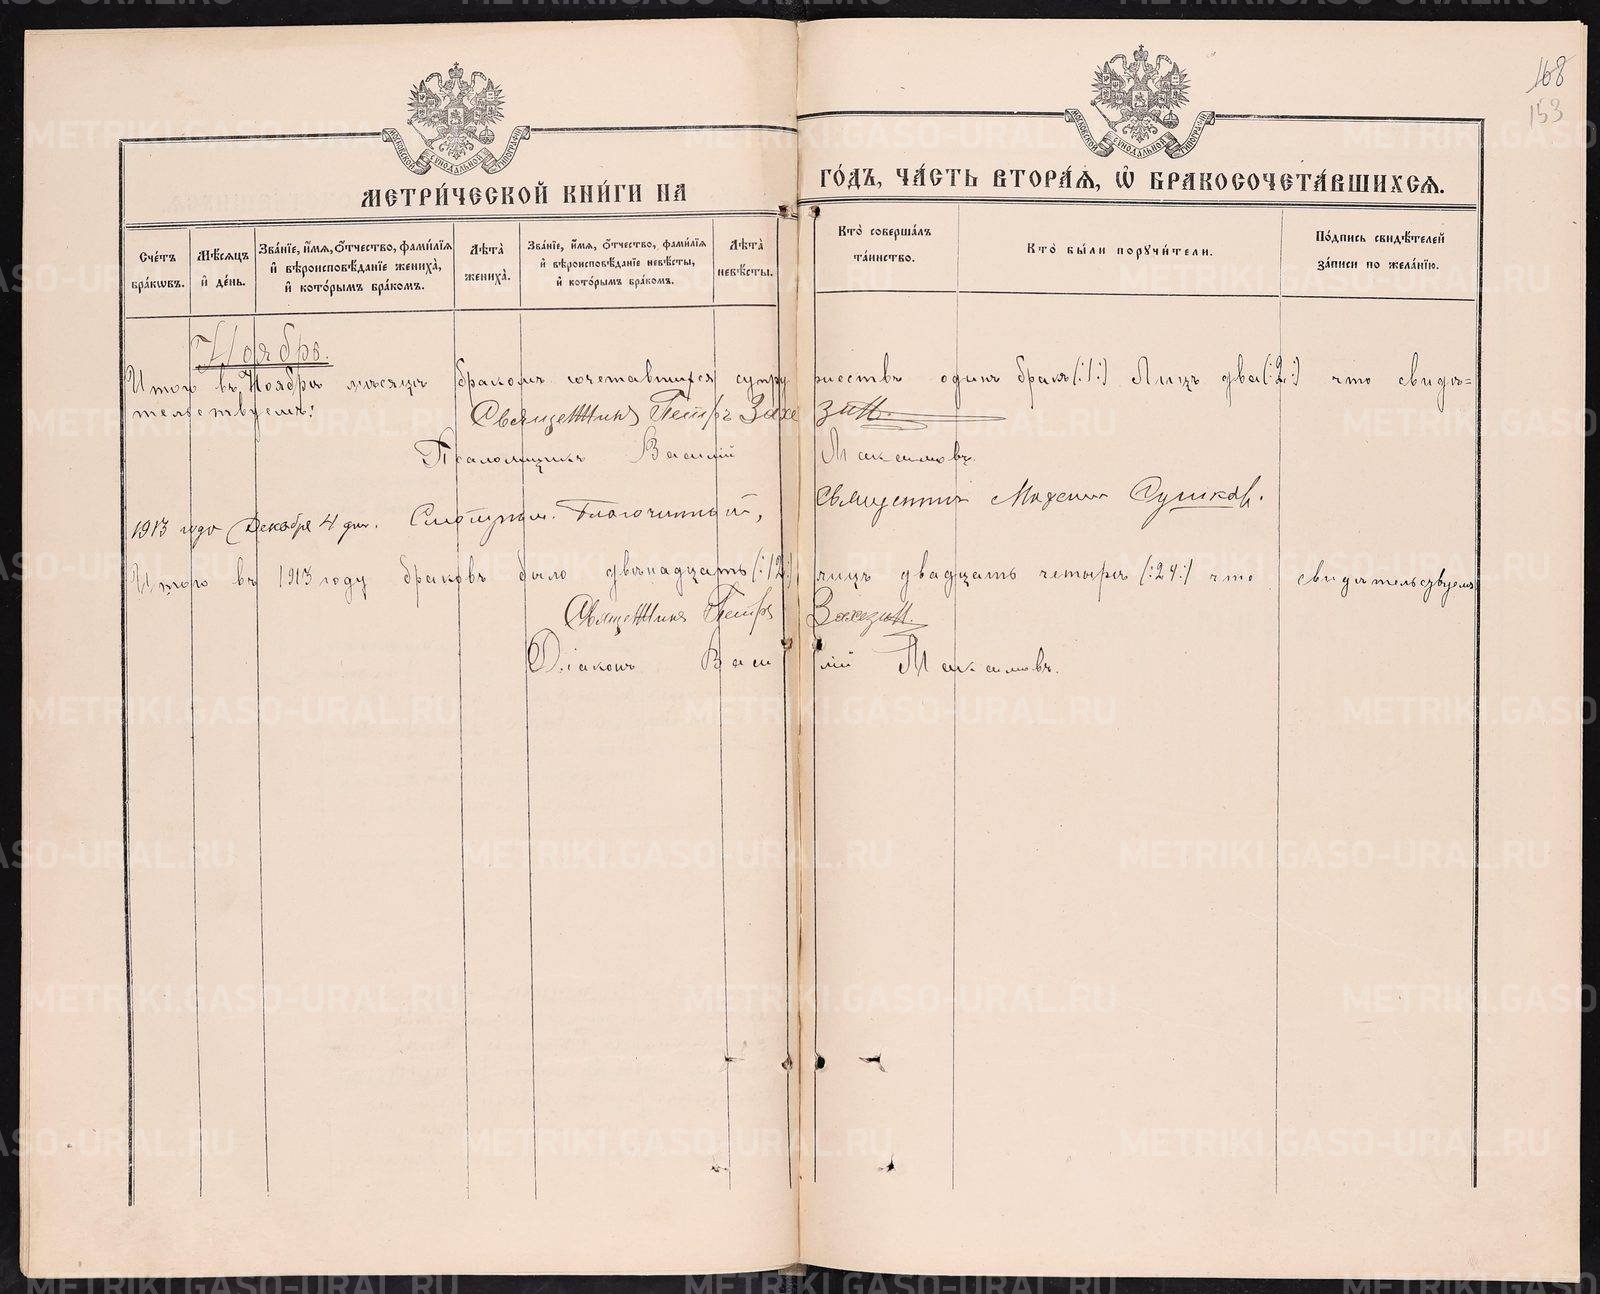 168
153
МОСКОВСКОЙ СѴНОДАЛЬНОЙ ТИПОГРАФІИ
МОСКОВСКОЙ СѴНОДАЛЬНОЙ ТИПОГРАФІИ
МЕТРИ́ЧЕСКОЙ КНИ́ГИ НА ГО́ДЪ, ЧА́СТЬ ВТОРА́Ѧ, Ѡ҆ БРАКОСОЧЕТА́ВШИХСѦ.
Сче́тъ бра́кѡвъ.
Мѣ́сѧцъ и҆ де́нь.
Зва́нїе, и҆́мѧ, ѻ҆́тчество, фами́лїѧ и҆ вѣроисповѣ́данїе жениха̀, и҆ кото́рымъ бра́комъ.
Лѣ́та жениха̀.
Зва́нїе, и҆́мѧ, ѻ҆́тчество, фами́лїѧ и҆ вѣроисповѣ́данїе невѣ́сты, и҆ кото́рымъ бра́комъ.
Лѣ́та невѣ́сты.
Кто̀ соверша́лъ та́инство.
Кто̀ бы́ли порꙋчи́тели.
По́дпись свидѣ́телей за́писи по жела́нїю.
Ноябрь.
Итого въ Ноябрѣ мѣсяцѣ бракомъ сочетавшихся супружествъ одинъ бракъ (:1:) Лицъ два (:2:) что свидѣ=
тельствуемъ:
Священникъ Петръ Захезинъ.
Псаломщикъ Василій Максимовъ.
1913 года Декабря 4 дня. Смотрѣлъ. Благочинный, Священникъ Максимъ Сушковъ.
Итого въ 1913 году браковъ было двѣнадцать (:12:) лицъ двадцать четыре (:24:) что свидѣтельствуемъ
Священникъ Петръ Захезинъ.
Діаконъ Василій Максимовъ.
METRIKI.GASO-URAL.RU